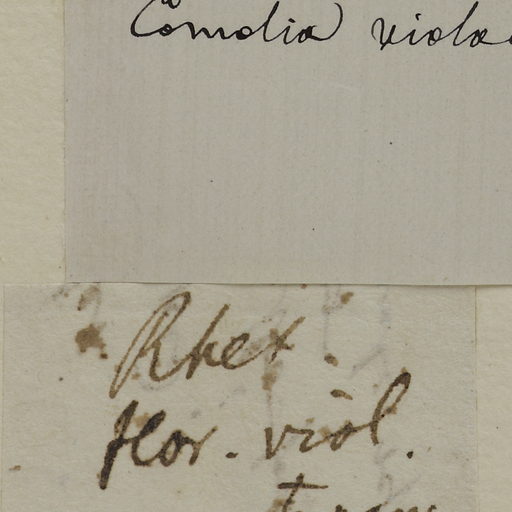 Comolia viola
Rhex.
flor. viol.